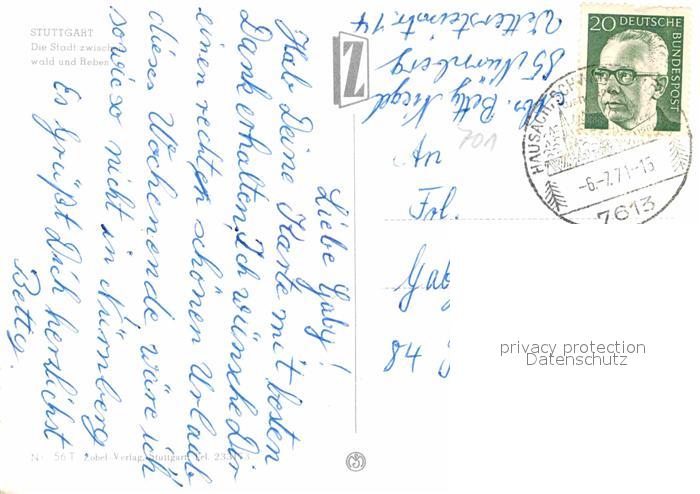 STUTTGART
Die Stadt zwisch
wald und Reben
Liebe Gaby!
Hab Deine Karte mit besten
Dank erhalten. Ich wünsche Dir
einen rechten schönen Urlaub
dieses Wochenende wäre ich
sowieso nicht in Nürnberg
Es Grüßt Dich herzlichst
Betty.
Abs. Betty
85 Nürnberg
14
701
An
Frl.
Gab
84
20 DEUTSCHE
BUNDESPOST
HAUSACH-SCHW
-6.-7.71-15
7613
privacy protection
Datenschutz
Nr. 56 T Zobel-Verlag, Stuttgart, Tel.
Z